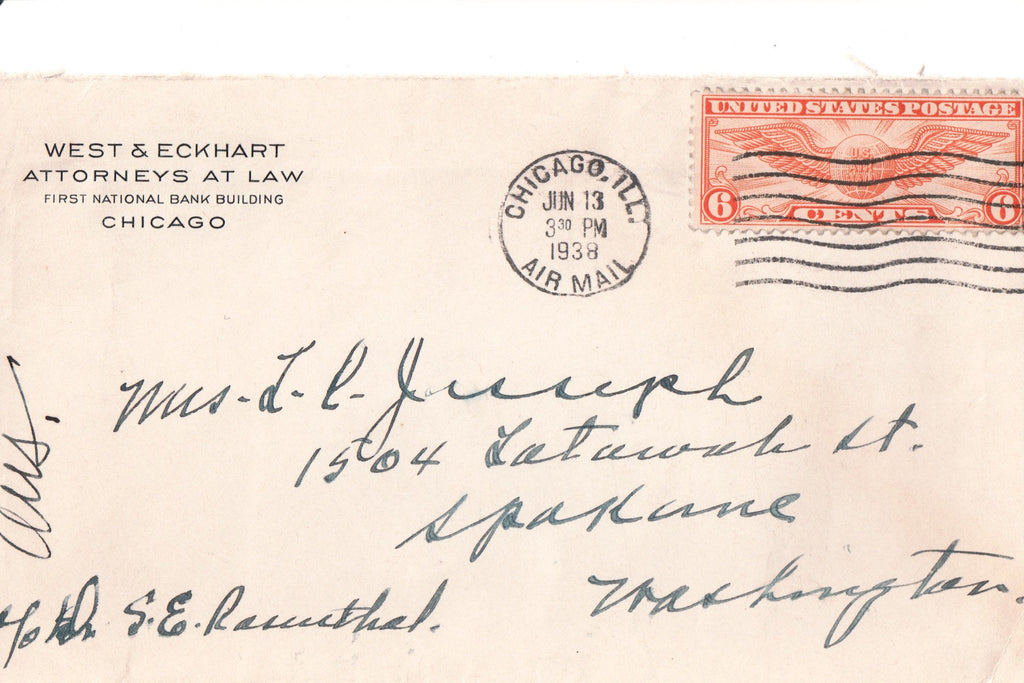 WEST & ECKHART
ATTORNEYS AT LAW
FIRST NATIONAL BANK BUILDING
CHICAGO
CHICAGO, ILL.
JUN 13
3 30 PM
1938
AIR MAIL
UNITED STATES POSTAGE
U.S.
6 CENTS 6
Mrs. L. C. Joseph
1504 Latawah St.
Spokane
Washington.
Ans.
c/o Dr S. E. Rosenthal.